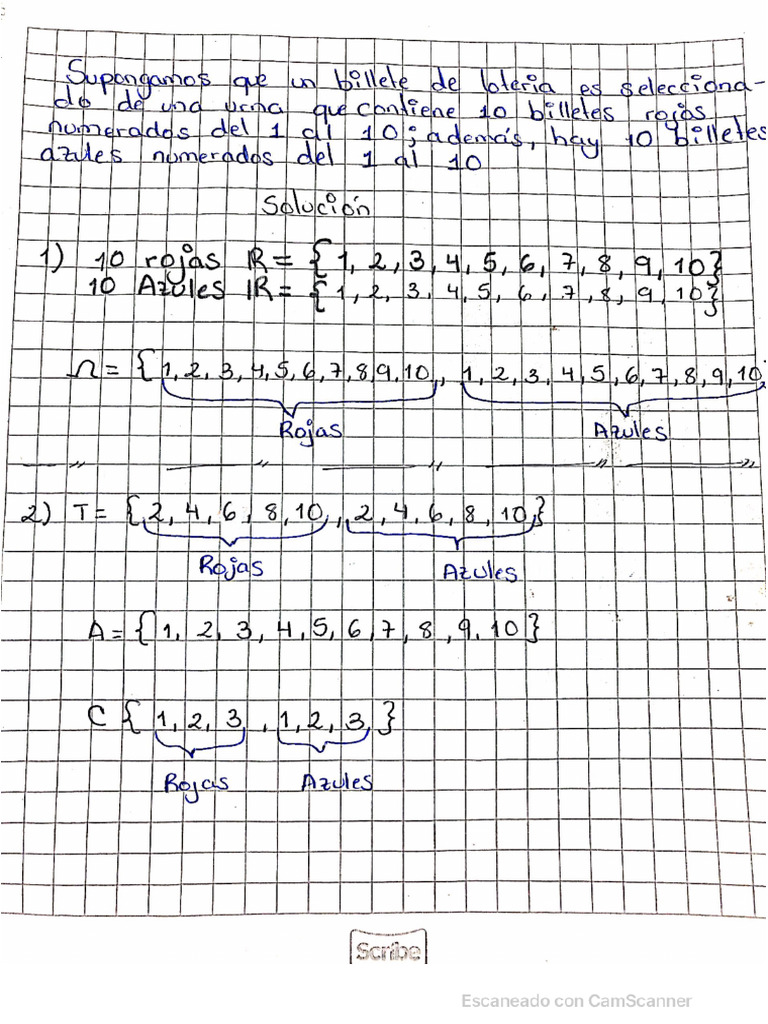 Supongamos que un billete de loteria es selecciona-
do de una urna que contiene 10 billetes rojos
numerados del 1 al 10; además, hay 10 billetes
azules numerados del 1 al 10
Solución
1) 10 rojas R = {1, 2, 3, 4, 5, 6, 7, 8, 9, 10}
10 Azules IR = {1, 2, 3, 4, 5, 6, 7, 8, 9, 10}
Ω = {1, 2, 3, 4, 5, 6, 7, 8, 9, 10, 1, 2, 3, 4, 5, 6, 7, 8, 9, 10,
Rojas Azules
2) T = {2, 4, 6, 8, 10, 2, 4, 6, 8, 10}
Rojas Azules
A = {1, 2, 3, 4, 5, 6, 7, 8, 9, 10}
C {1, 2, 3, 1, 2, 3}
Rojas Azules
Scribe
Escaneado con CamScanner